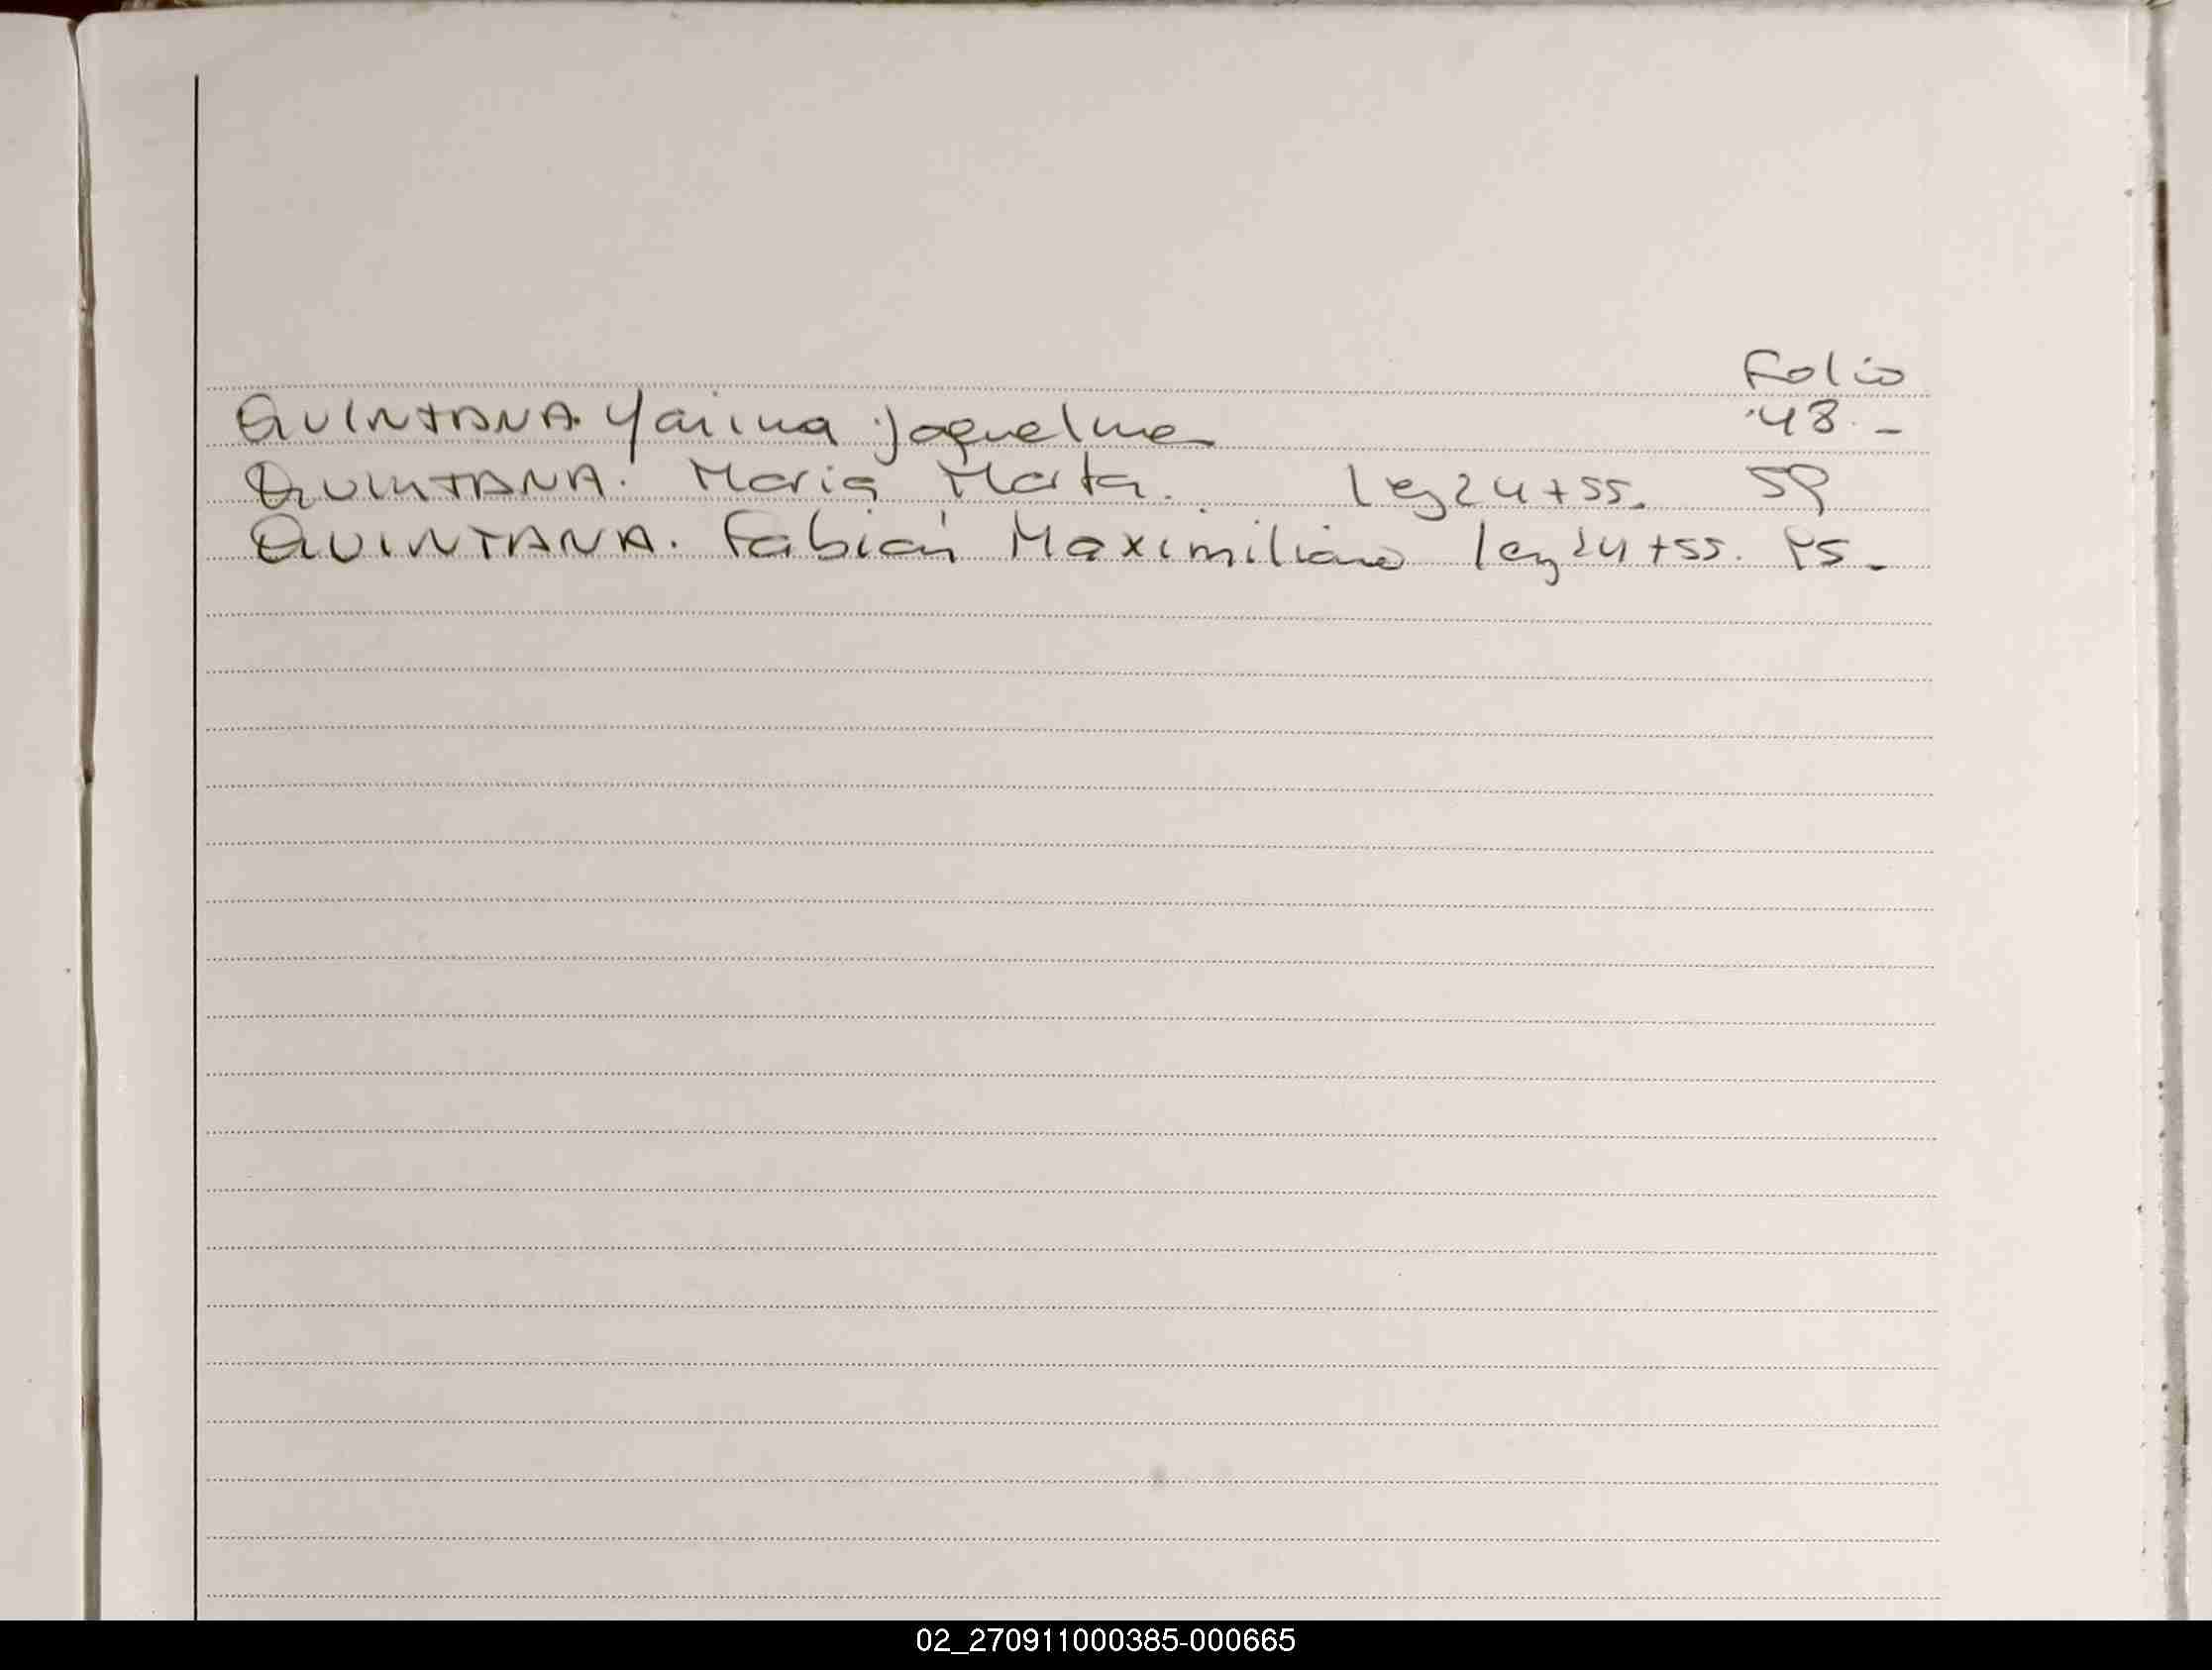 Folio
QUINTANA. Yaima Jaqueline 48.-
QUINTANA. Maria Marta. ley 24455. 59
QUINTANA. Fabián Maximiliano ley 24455.
02_270911000385-000665